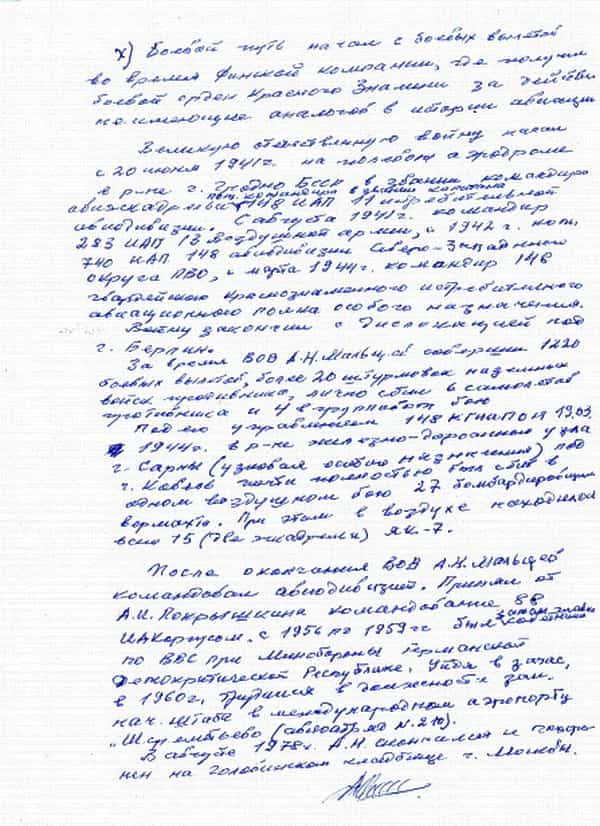 х) Боевой путь начал с боевых вылетов
во время Финской компании, где получил
боевой орден Красного Знамени за действия
не имеющие аналогов в истории авиации
Великую отечественную войну начал
с 20 июня 1941г. на полевом аэродроме
в р-не г. Гродно БССР в звании командира
пом. командира в звании капитана
авиаэскадрильи 148 ИАП 11 истребительной
авиадивизии. С августа 1941г. командир
283 ИАП 13 Воздушной армии, с 1942 г. ком.
740 ИАП 148 авиадивизии Северо-Западного
округа ПВО, с марта 1944г. командир 148
гвардейского краснознаменного истребительного
авиационного полка особого назначения.
Войну закончил с дислокацией под
г. Берлин.
За время ВОВ А.Н. Мальцев совершил 1220
боевых вылетов, более 20 штурмовок наземных
войск противника, лично сбил 6 самолетов
противника и 4 в групповом бою
Под его управлением 148 КГИАПОН 19.03.
1944г. в р-не железно-дорожного узла
г. Сарны (узловая особого назначения) под
г. Ковель почти полностью был сбит в
одном воздушном бою 27 бомбардировщиков
вермахта. При этом в воздухе находилось
всего 15 (две эскадрильи) ЯК-7.
После окончания ВОВ А.Н. Мальцев
командовал авиодивизией. Принял от
А.И. Покрышкина командование 88
ИАКорпусом. с 1956 по 1959гг был
по ВВС при Минобороны Германской
Демократической Республике. Уйдя в запас,
в 1960г. трудился в должности зам.
нач. штаба в международном аэропорту
„Шереметьево (авиаотряд N.210).
В августе 1978г. А.Н. скончался и похоро-
нен на Головинском кладбище г. Москвы.